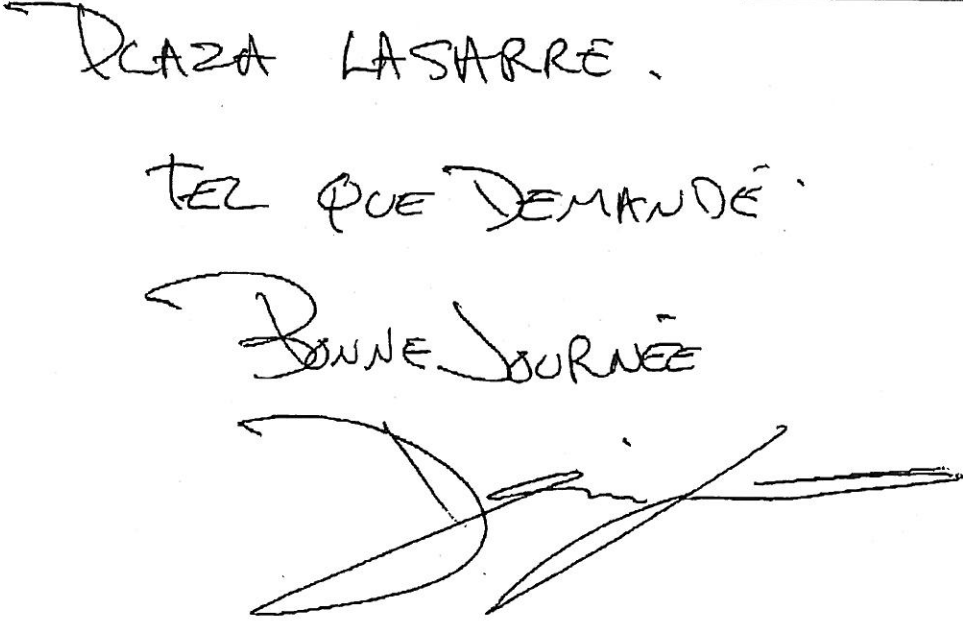 PLAZA LASARRE.
TEL QUE DEMANDÉ.
BONNE JOURNÉE